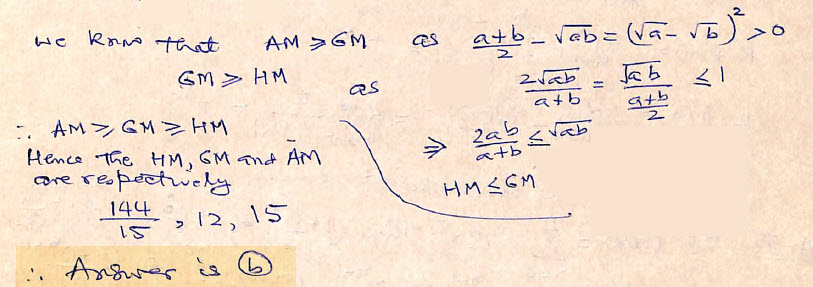 we know that AM ≥ GM as (a+b)/2 - √ab = (√a - √b)² > 0
GM ≥ HM as 2√ab/(a+b) = √ab/((a+b)/2) ≤ 1
∴ AM ≥ GM ≥ HM
⇒ 2ab/(a+b) ≤ √ab
HM ≤ GM
Hence The HM, GM and AM
are respectively
144/15, 12, 15
∴ Answer is (b)